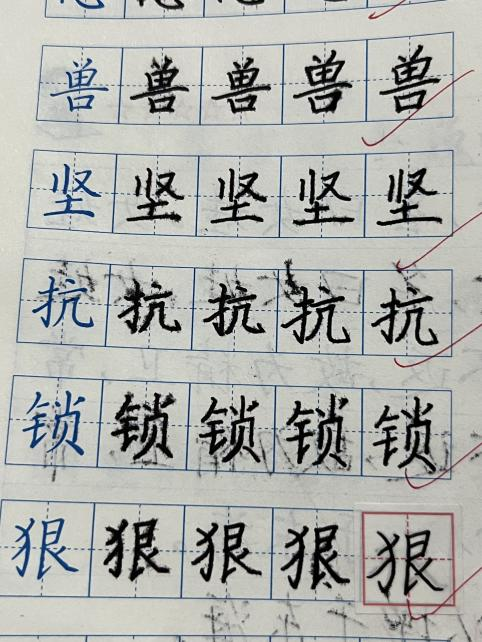 兽兽兽兽兽
坚坚坚坚坚
抗抗抗抗抗
锁锁锁锁锁
狠狠狠狠狠